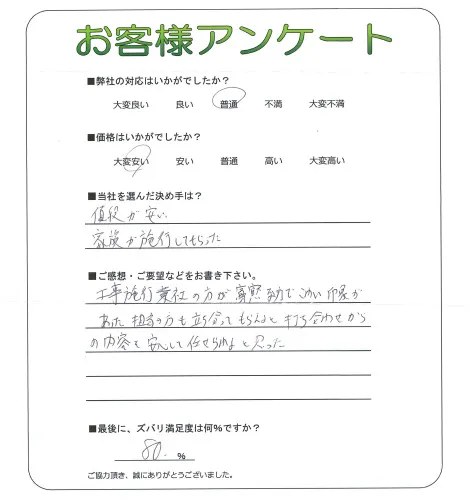 お客様アンケート
■弊社の対応はいかがでしたか？
大変良い 良い 普通 不満 大変不満
■価格はいかがでしたか？
大変安い 安い 普通 高い 大変高い
■当社を選んだ決め手は？
値段が安い
家族が施行してもらった
■ご感想・ご要望などをお書き下さい。
工事施行業社の方が寡黙 印象が
あった 担当の方も立ち合ってもらえると打ち合わせから
の内容を安心して任せられると思った
■最後に、ズバリ満足度は何%ですか？
80. %
ご協力頂き、誠にありがとうございました。